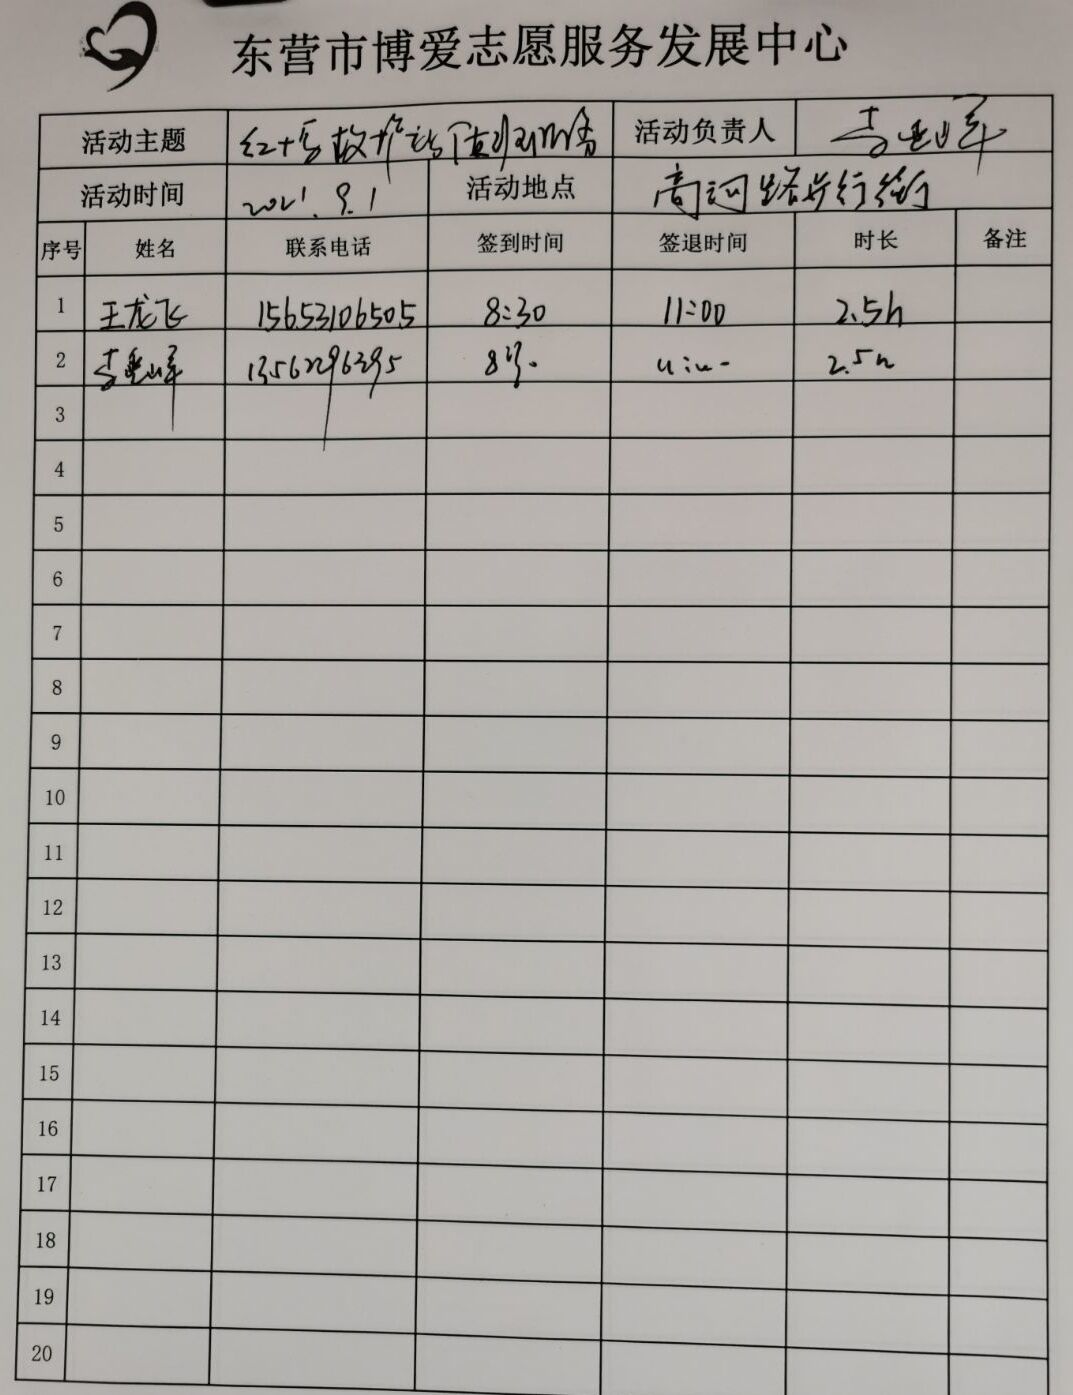 东营市博爱志愿服务发展中心
活动主题 红十字救护站值班服务 活动负责人 李
活动时间 2021.9.1 活动地点 商河路步行街
序号 姓名 联系电话 签到时间 签退时间 时长 备注
1 王龙飞 15653106505 8:30 11:00 2.5h
2 李 13562296395 2.5h
3
4
5
6
7
8
9
10
11
12
13
14
15
16
17
18
19
20